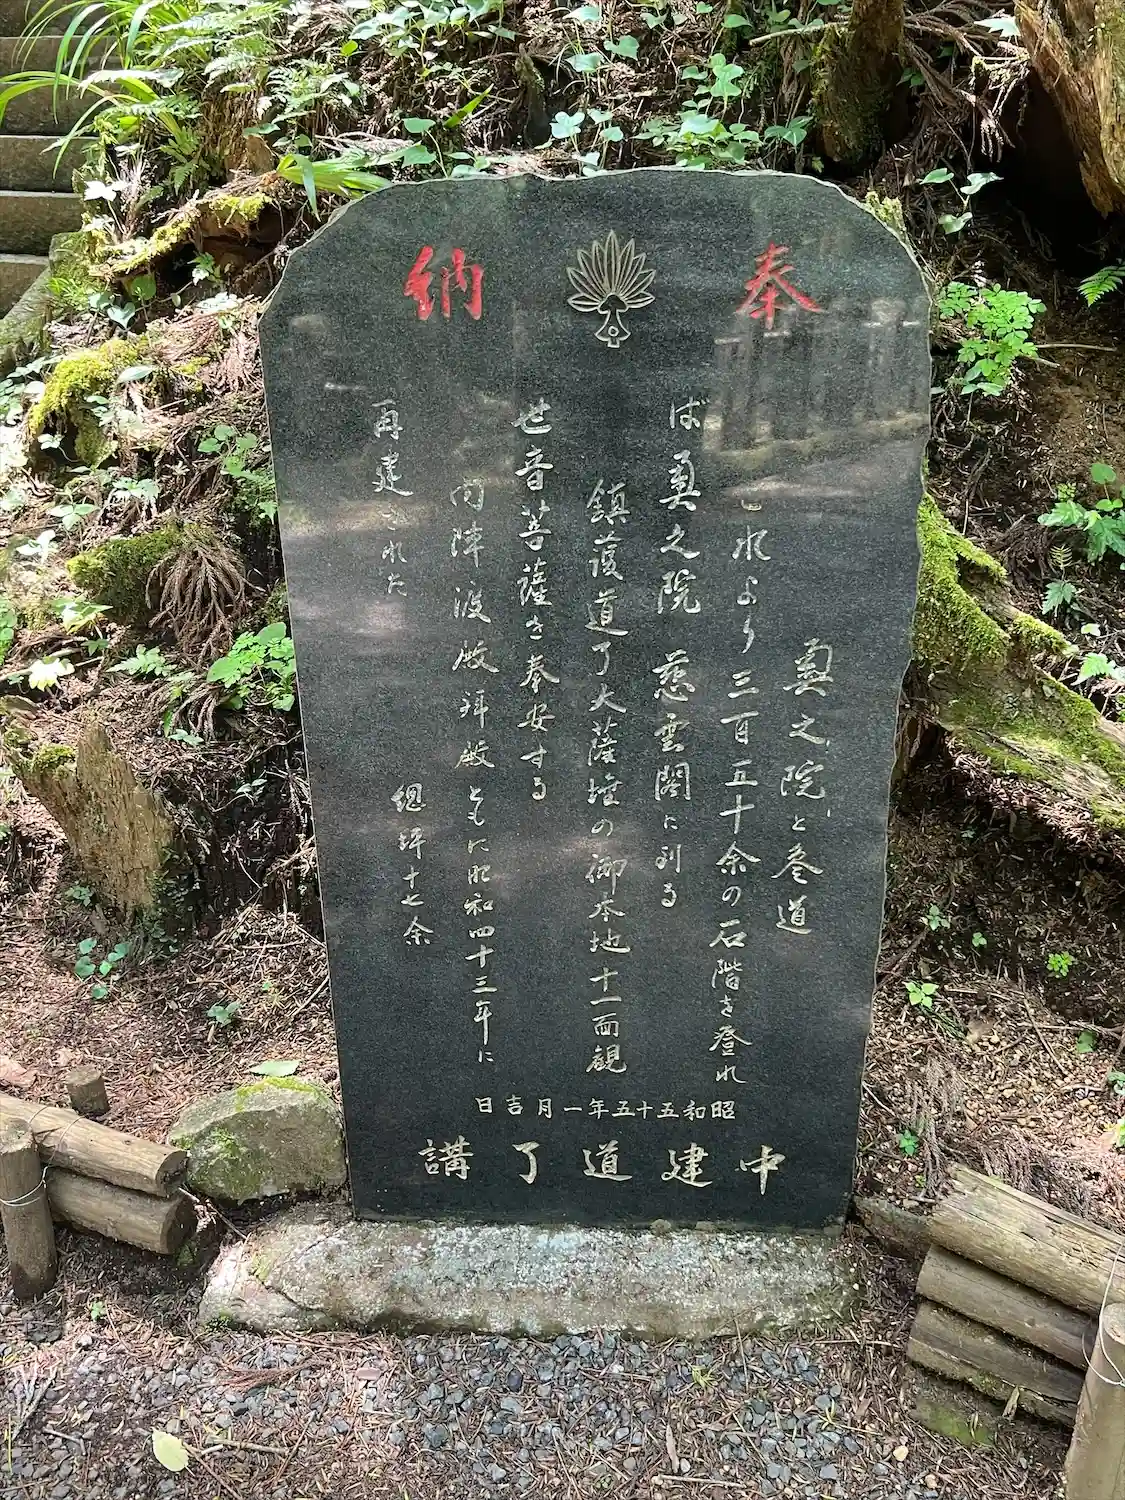 奉納
奥之院と参道
これより三百五十余の石階を登れ
ば奥之院 慈雲閣に到る
鎮護道了大薩埵の御本地十一面観
世音菩薩を奉安する
内陣渡殿拝殿ともに昭和四十三年に
再建された 總坪十七余
昭和五十五年一月吉日
中建道了講